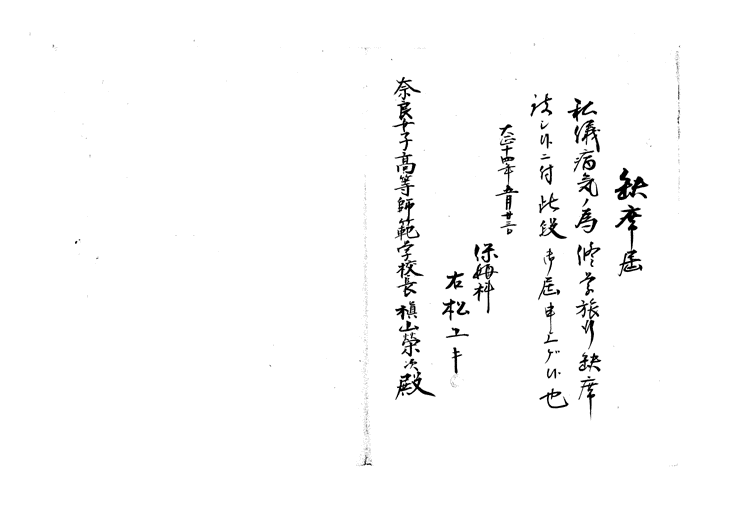 缺席届
私儀病気ノ為修学旅行缺席
致シ候ニ付此段御届申上ゲ候也
大正十四年五月廿三日
保姆科
右松ユキ
奈良女子高等師範学校長槇山榮次殿